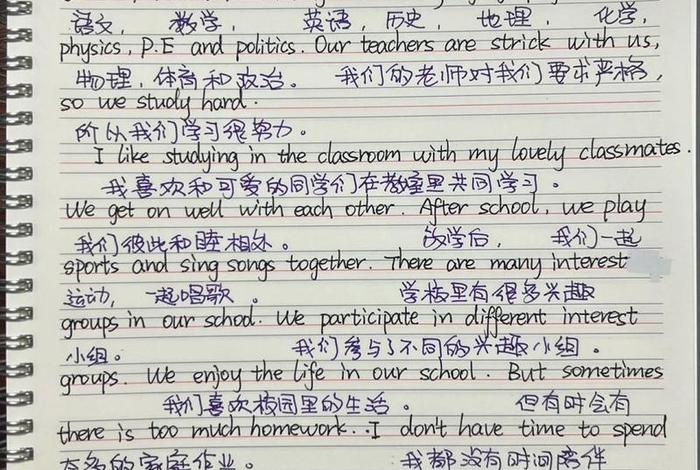 语文, 数学, 英语, 历史, 地理, 化学,
physics, P.E and politics. Our teachers are strick with us,
物理, 体育和政治。 我们的老师对我们要求严格,
so we study hard.
所以我们学习很努力。
I like studying in the classroom with my lovely classmates.
我喜欢和可爱的同学们在教室里共同学习。
We get on well with each other. After school, we play
我们彼此和睦相处。 放学后, 我们一起
sports and sing songs together. There are many interest
运动, 一起唱歌。 学校里有很多兴趣
groups in our school. We participate in different interest
小组。 我们参与了不同的兴趣小组。
groups. We enjoy the life in our school. But sometimes
我们喜欢校园里的生活。 但有时会有
there is too much homework. I don't have time to spend
太多的家庭作业。 我都没有时间陪伴